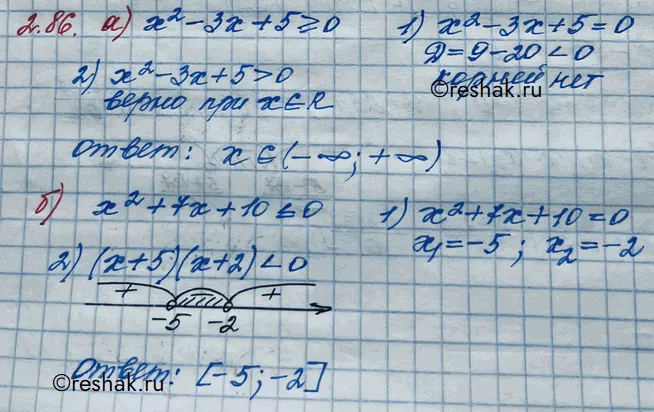 2.86. а) x² - 3x + 5 ≥ 0
1) x² - 3x + 5 = 0
Д = 9 - 20 < 0
корней нет
©reshak.ru
2) x² - 3x + 5 > 0
верно при x ∈ R
Ответ: x ∈ (-∞; +∞)
б) x² + 7x + 10 ≤ 0
1) x² + 7x + 10 = 0
x₁ = -5; x₂ = -2
2) (x+5)(x+2) < 0
+ +
-5 -2
Ответ: [-5; -2]
©reshak.ru